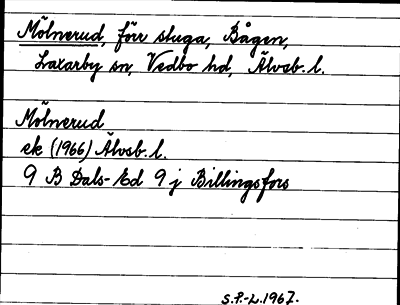 Mölnerud, förr stuga, Bågen,
Laxarby sn, Vedbo hd, Älvsb. l.
Mölnerud
ek (1966) Älvsb. l.
9 B Dals-Ed 9 j Billingsfors
S.P.-L. 1967.